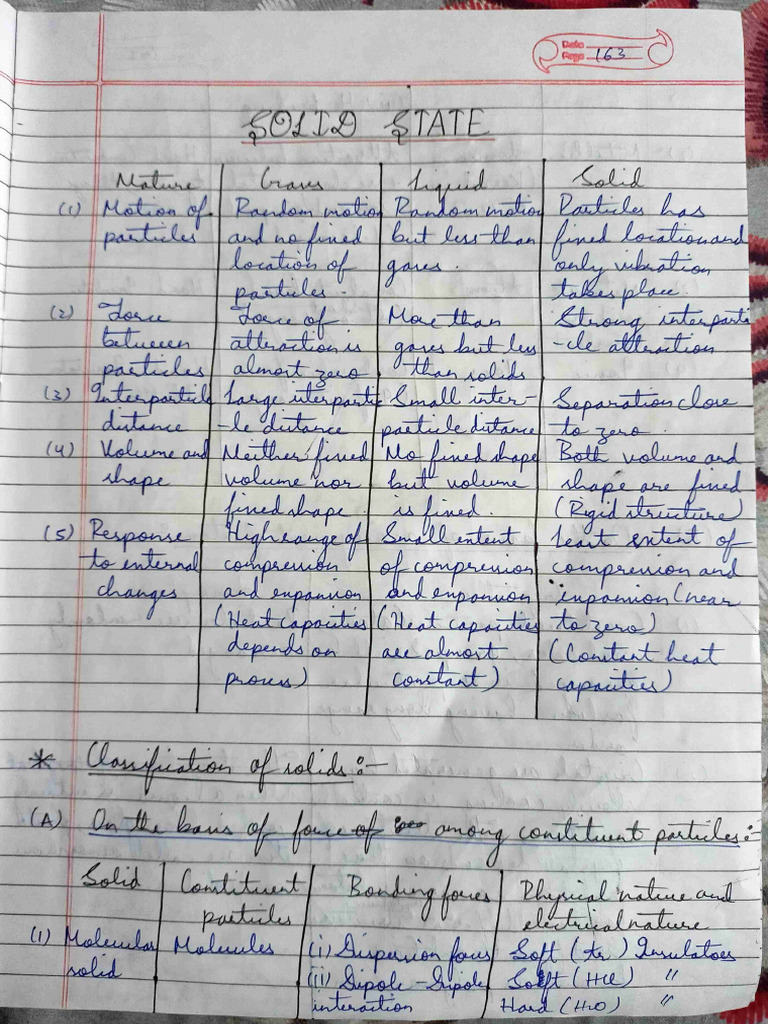 Date
Page 163
SOLID STATE
Nature Gases Liquid Solid
(1) Motion of Random motion Random motion Particles has
particles and no fixed but less than fixed location and
location of gases. only vibration
particles. takes place.
(2) Force Force of More than Strong interparti
between attraction is gases but less -cle attraction
particles almost zero than solids
(3) Interparticle Large interpartic Small inter- Separation close
distance -le distance particle distance to zero.
(4) Volume and Neither fixed No fixed shape Both volume and
shape volume nor but volume shape are fixed
fixed shape. is fixed. (Rigid structure)
(5) Response High range of Small extent Least extent of
to external compression of compression compression and
changes and expansion and expansion expansion (near
(Heat capacities (Heat capacities to zero)
depends on are almost (Constant heat
process) constant) capacities)
* Classification of solids:-
(A) On the basis of force of among constituent particles:-
Solid Constituent Bonding forces Physical nature and
particles electrical nature
(1) Molecular Molecules (i) Dispersion forces Soft (Ar) Insulators
solid (ii) Dipole-Dipole Soft (HCl) "
interaction Hard (H2O) "